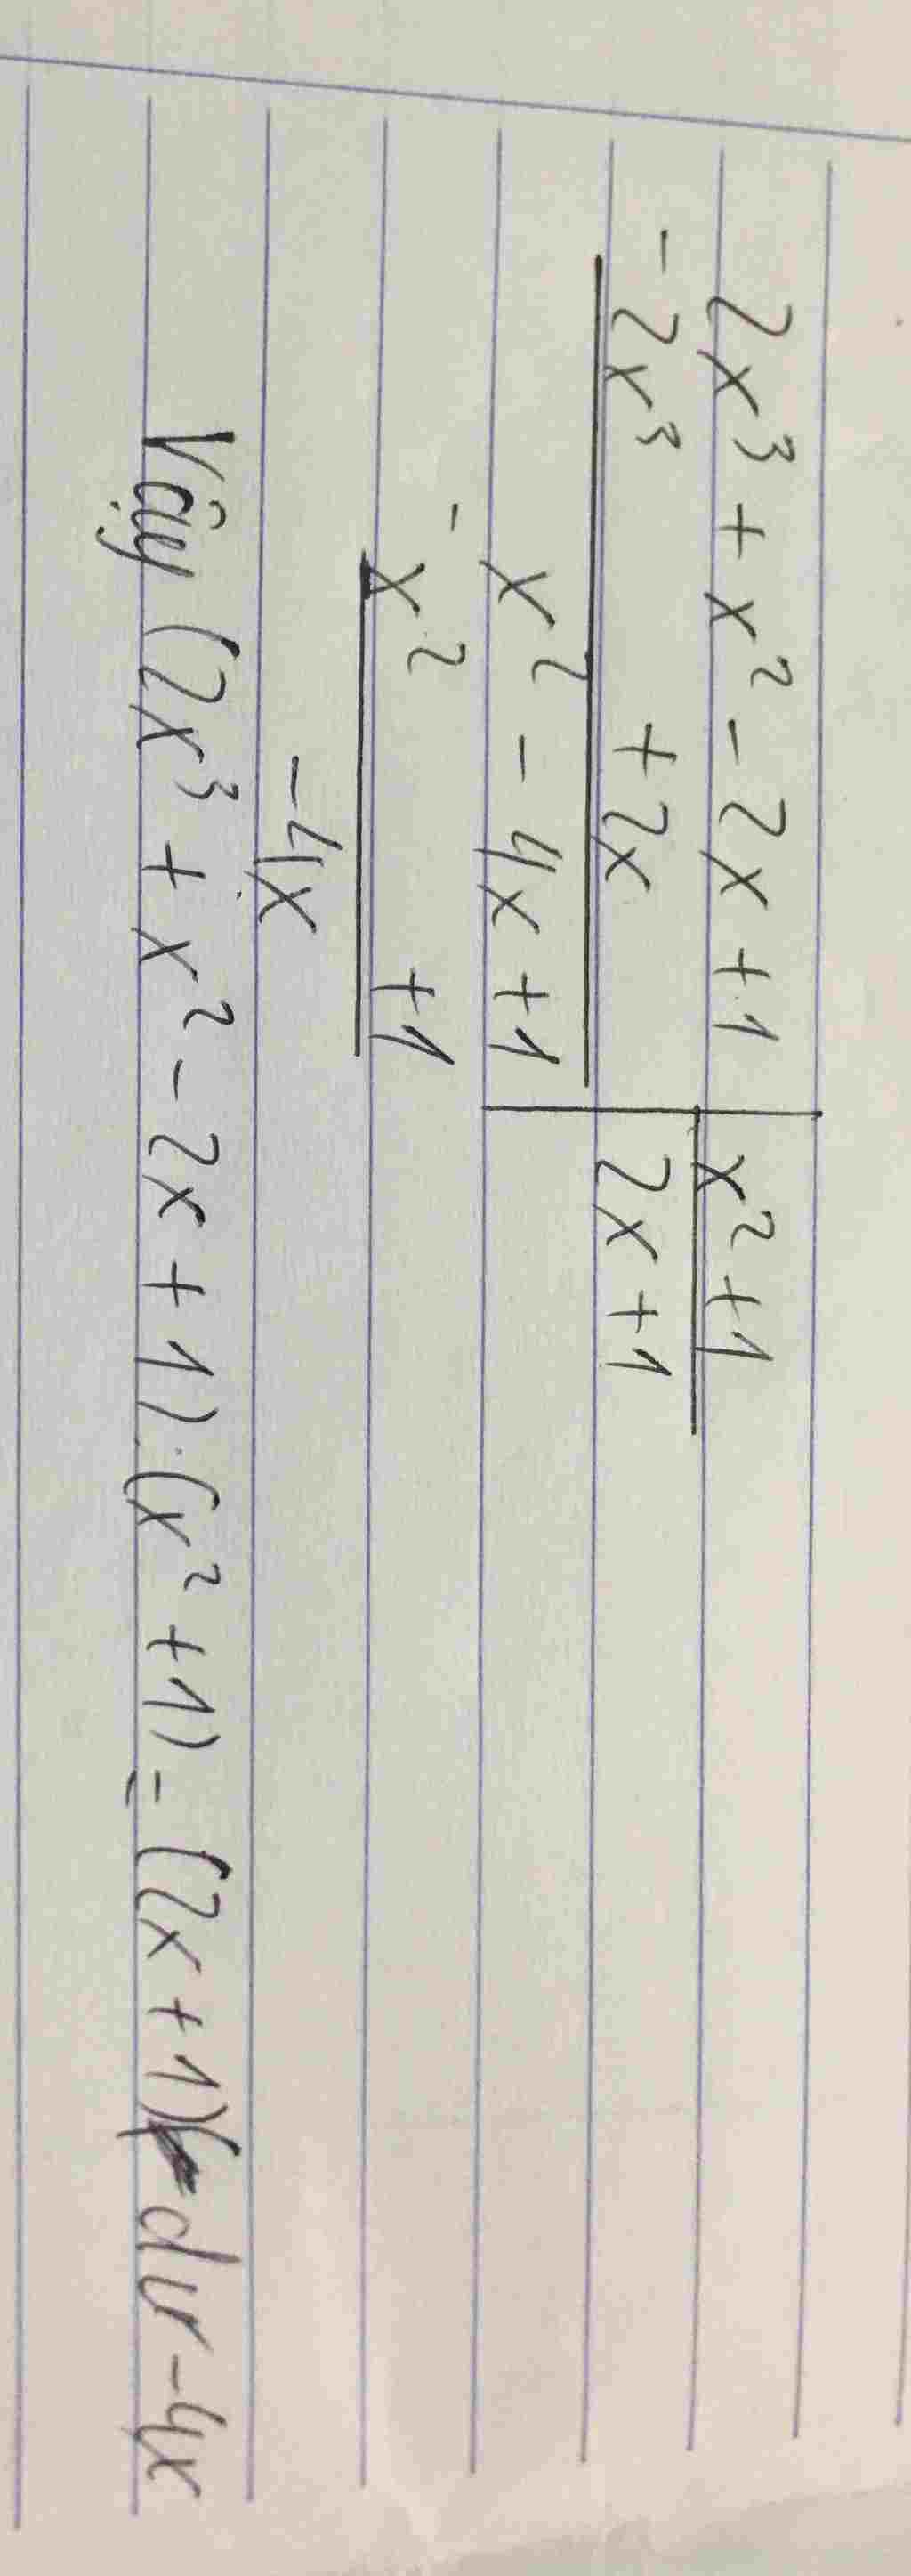 2x³ + x² - 2x + 1 | x² + 1
- 2x³ + 2x | 2x + 1
x² - 4x + 1
- x² + 1
- 4x
Vậy (2x³ + x² - 2x + 1) : (x² + 1) = (2x + 1) dư - 4x